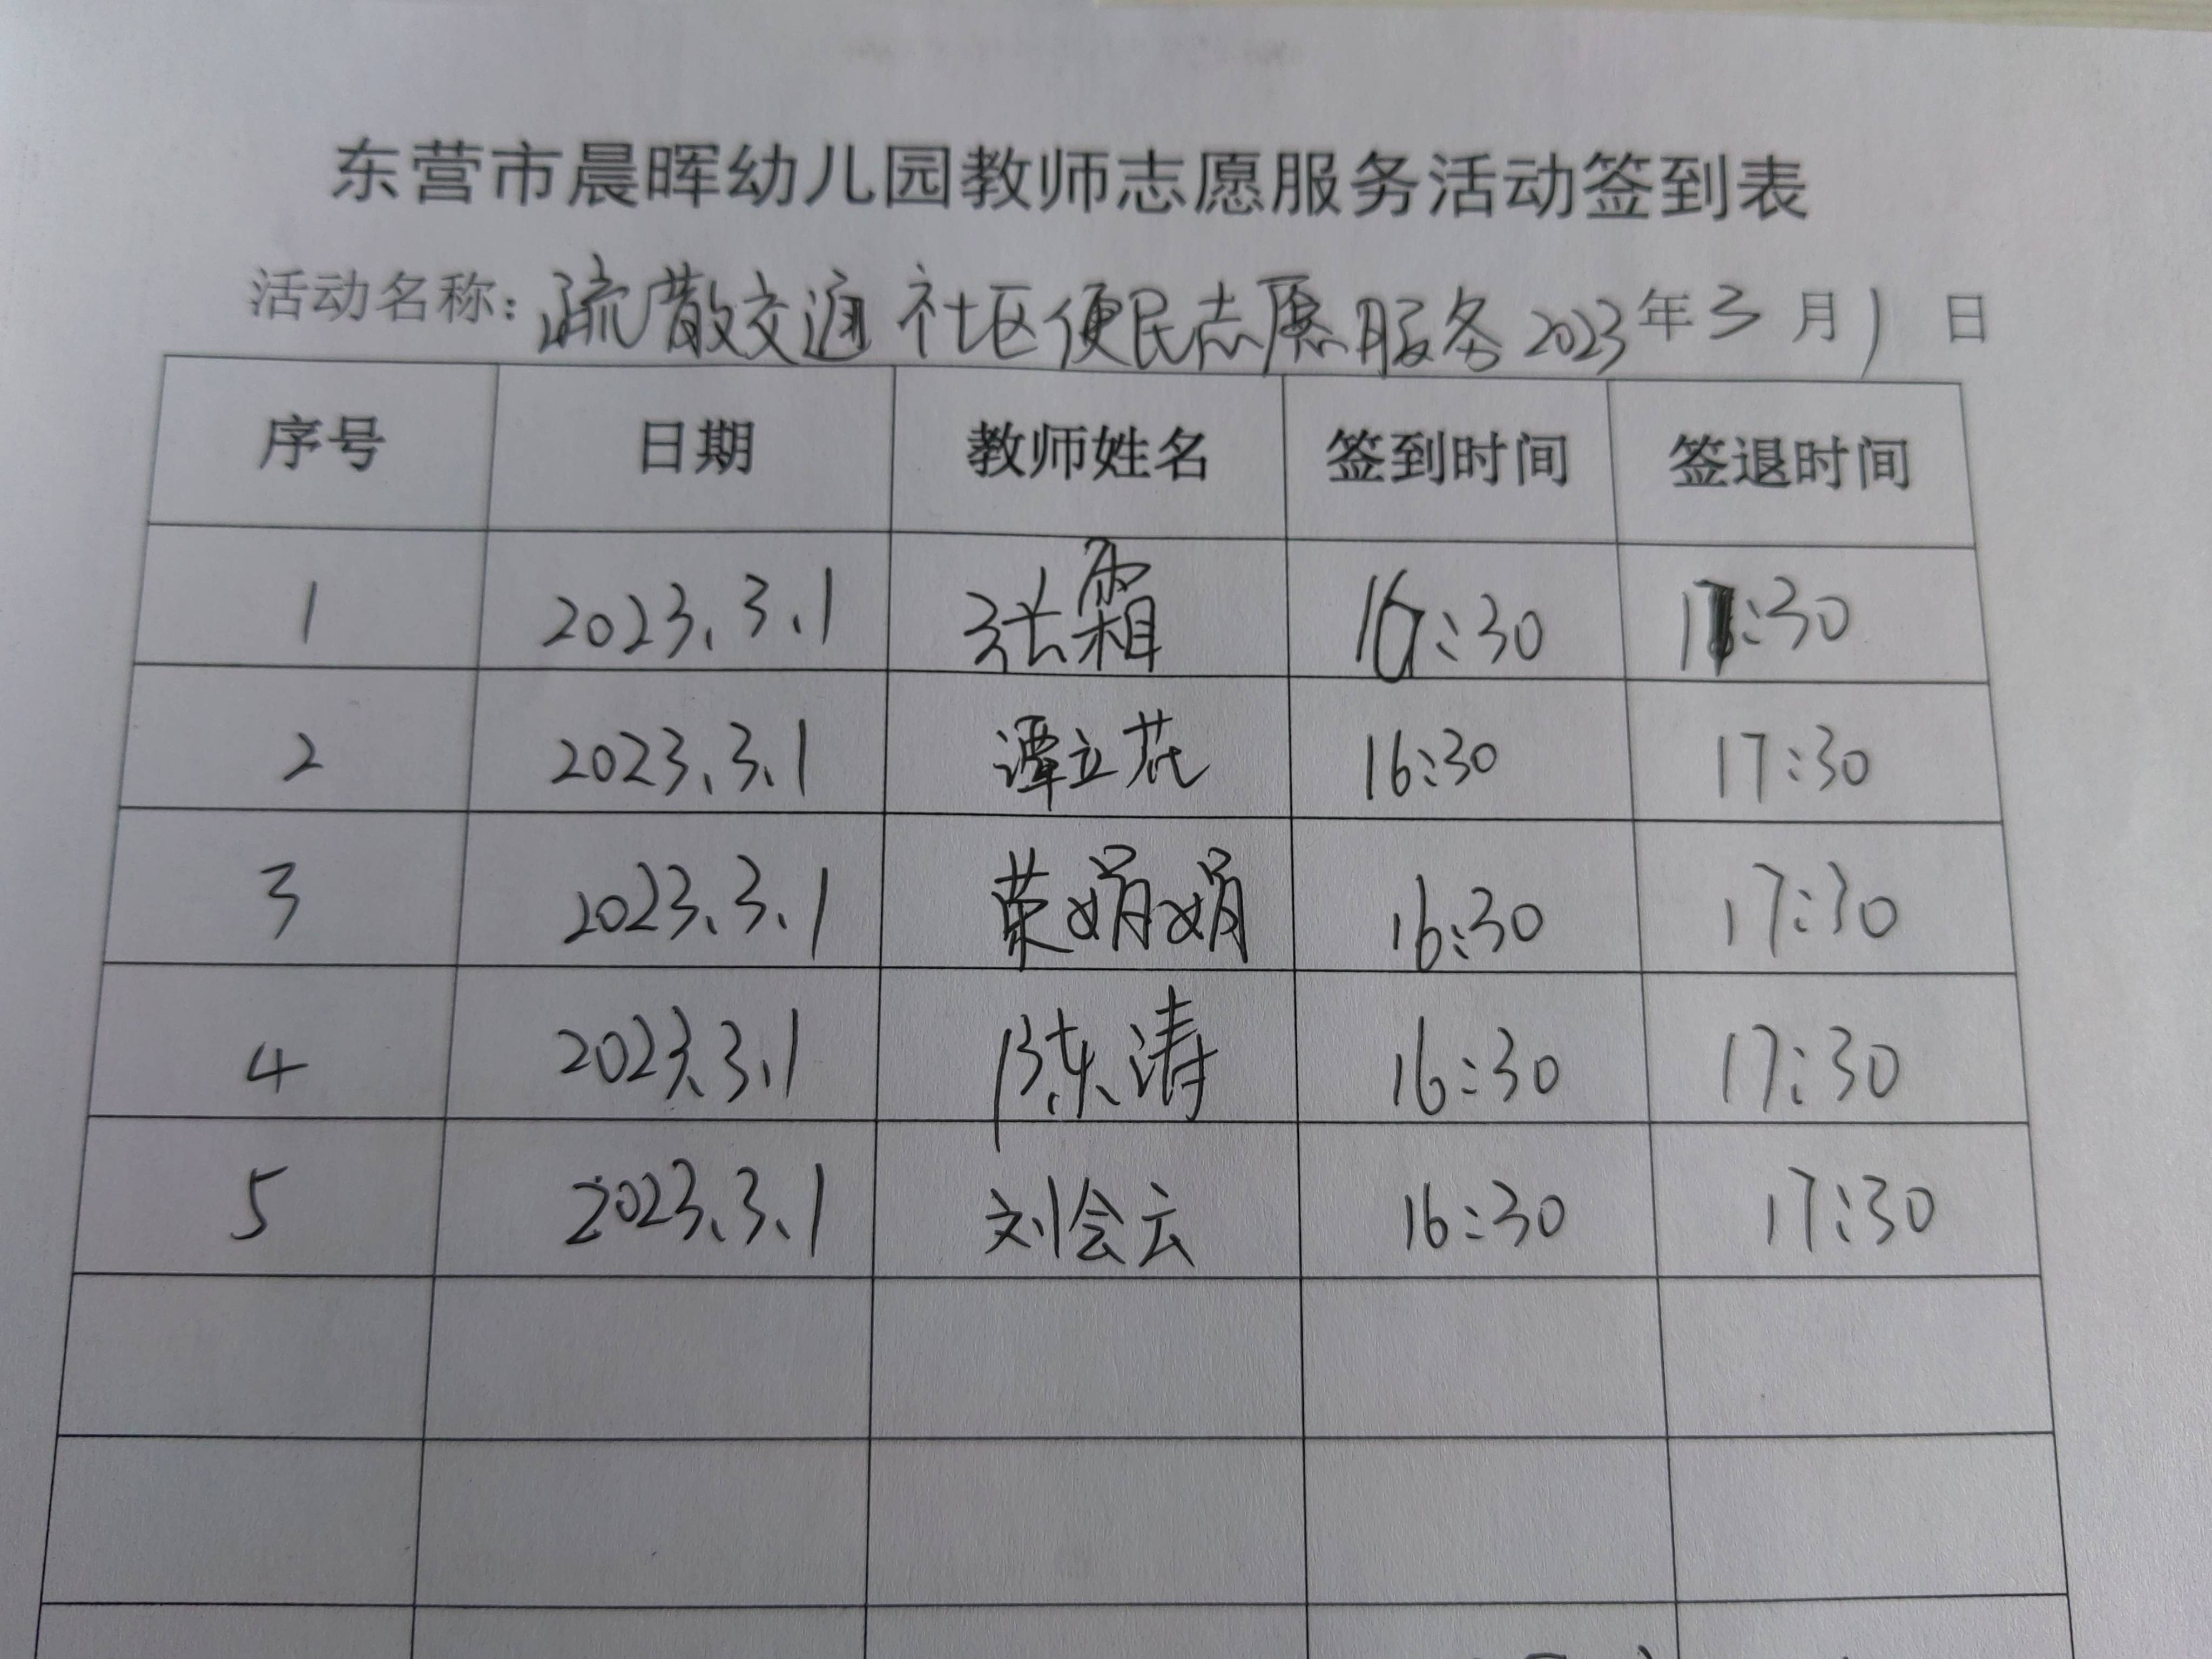 东营市晨晖幼儿园教师志愿服务活动签到表
活动名称：疏散交通 社区便民志愿服务 2023年3月1日
序号 日期 教师姓名 签到时间 签退时间
1 2023.3.1 张霜 16:30 17:30
2 2023.3.1 谭立花 16:30 17:30
3 2023.3.1 荣娟娟 16:30 17:30
4 2023.3.1 陈涛 16:30 17:30
5 2023.3.1 刘会云 16:30 17:30